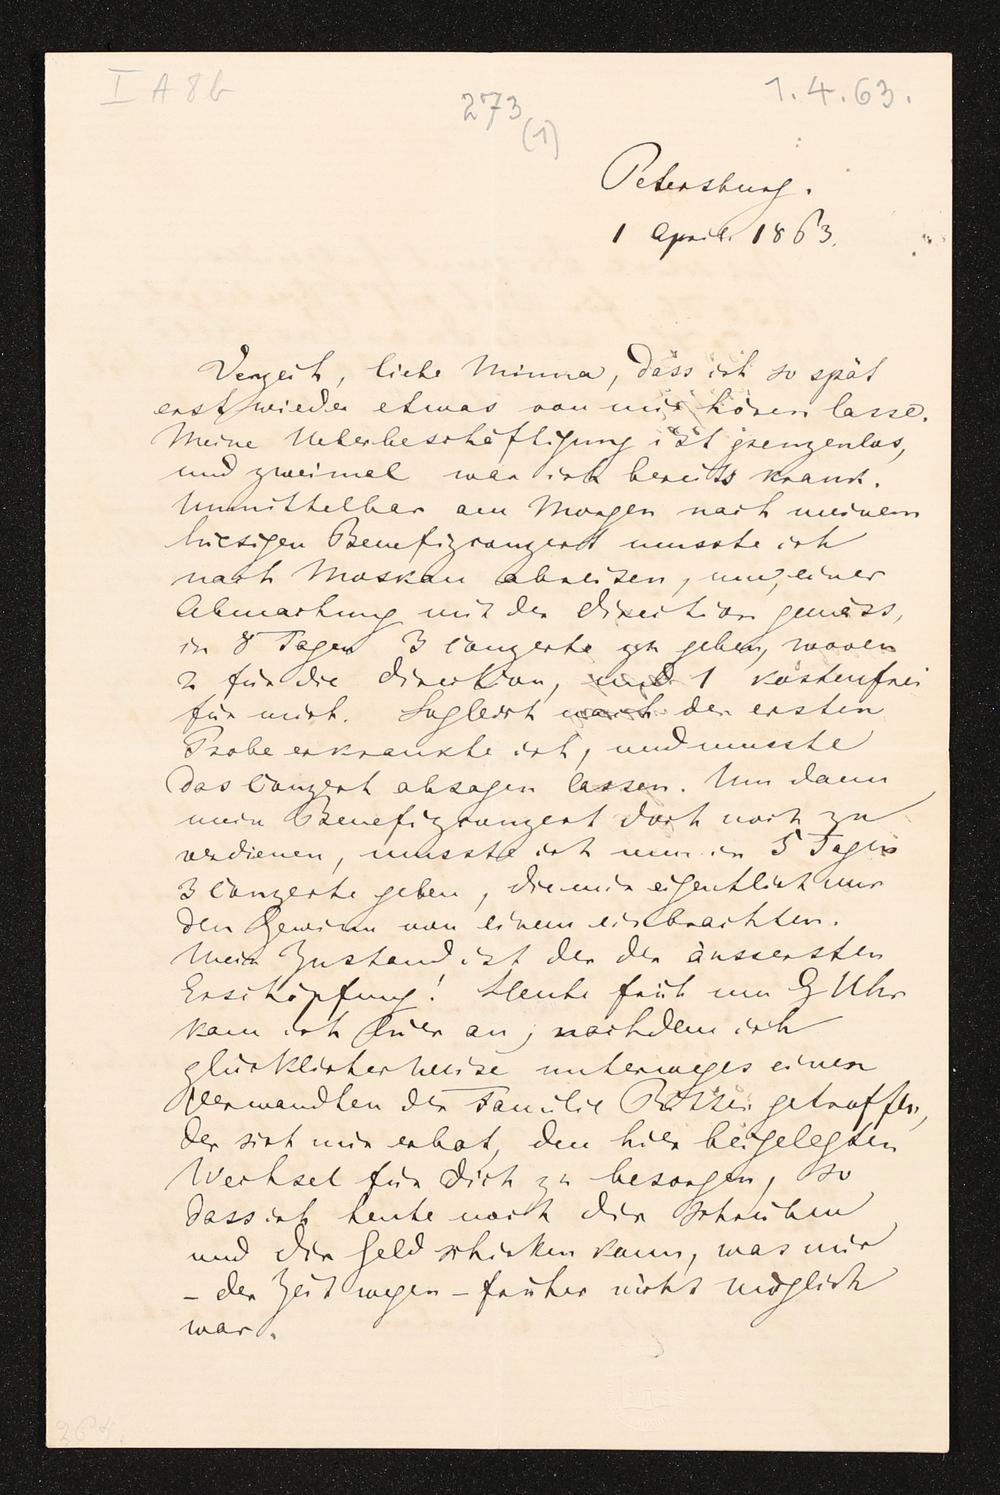 I A 8 b
273
(1)
1.4.63.
Petersburg.
1 April. 1863.
Verzeih, liebe Minna, dass ich so spät
erst wieder etwas von mir hören lasse.
Meine Ueberbeschäftigung ist grenzenlos,
und zweimal war ich bereits krank.
Unmittelbar am Morgen nach meinem
hiesigen Benefizconzert musste ich
nach Moskau abreisen, um, einer
Abmachung mit der Direction gemäss,
in 8 Tagen 3 Conzerte zu geben, wovon
2 für die Direction, und 1 kostenfrei
für mich. Sogleich nach der ersten
Probe erkrankte ich, und musste
das Conzert absagen lassen. Um dann
mein Benefizconzert doch noch zu
verdienen, musste ich nun in 5 Tagen
3 Conzerte geben, die mir eigentlich nur
den Gewinn von einem einbrachten.
Mein Zustand ist der der äussersten
Erschöpfung! Heute früh um 9 Uhr
kam ich hier an, nachdem ich
glücklicherweise unterweges einen
Verwandten der Familie getroffen,
der sich mir erbot, den hier beigelegten
Wechsel für Dich zu besorgen, so
dass ich heute noch Dir schreiben
und Dir Geld schicken kann, was mir
– der Zeit wegen – früher nicht möglich
war.
264.